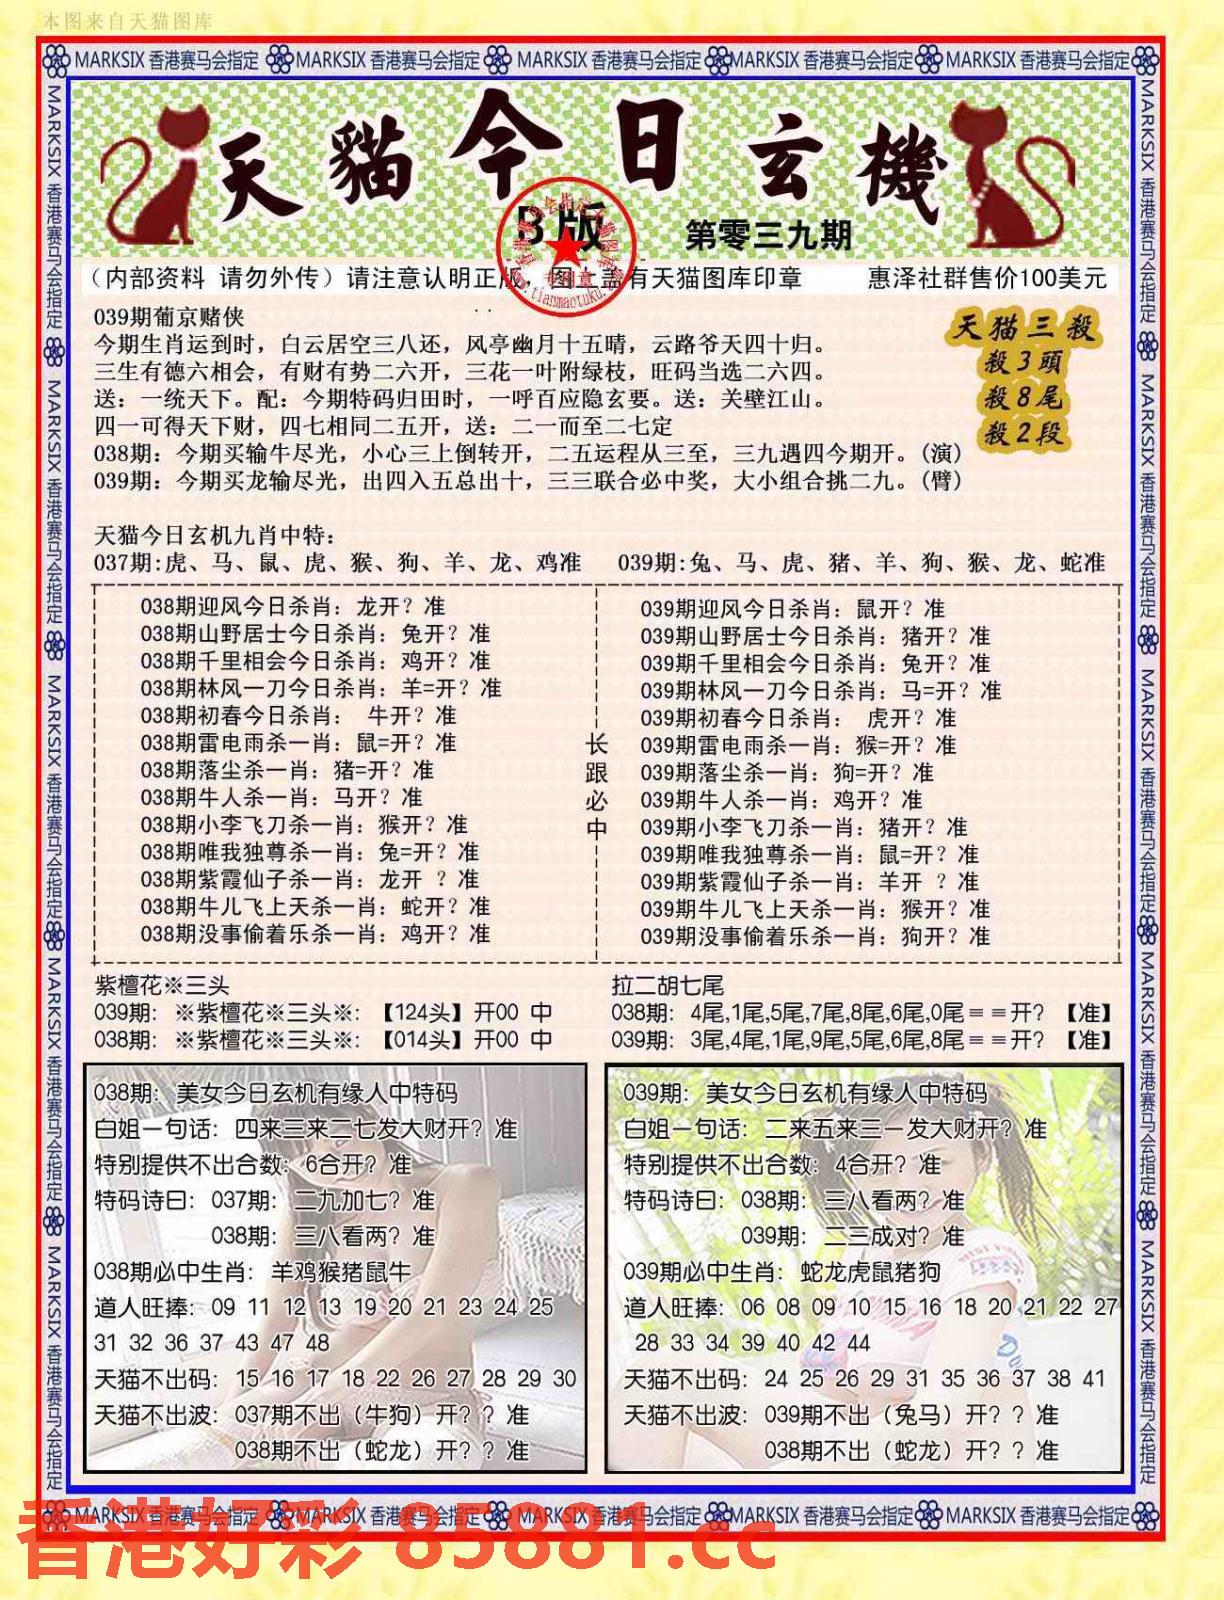 本图来自天猫图库
MARKSIX 香港赛马会指定 MARKSIX 香港赛马会指定 MARKSIX 香港赛马会指定 MARKSIX 香港赛马会指定 MARKSIX 香港赛马会指定
天貓今日玄機
B版
第零三九期
（内部资料 请勿外传）请注意认明正版，图上盖有天猫图库印章 惠泽社群售价100美元
039期葡京赌侠
今期生肖运到时，白云居空三八还，风亭幽月十五晴，云路爷天四十归。
三生有德六相会，有财有势二六开，三花一叶附绿枝，旺码当选二六四。
送：一统天下。配：今期特码归田时，一呼百应隐玄要。送：关壁江山。
四一可得天下财，四七相同二五开，送：二一而至二七定
038期：今期买输牛尽光，小心三上倒转开，二五运程从三至，三九遇四今期开。(演)
039期：今期买龙输尽光，出四入五总出十，三三联合必中奖，大小组合挑二九。(臂)
天猫三殺
殺3頭
殺8尾
殺2段
天猫今日玄机九肖中特：
037期:虎、马、鼠、虎、猴、狗、羊、龙、鸡准 039期:兔、马、虎、猪、羊、狗、猴、龙、蛇准
038期迎风今日杀肖：龙开？准
038期山野居士今日杀肖：兔开？准
038期千里相会今日杀肖：鸡开？准
038期林风一刀今日杀肖：羊=开？准
038期初春今日杀肖： 牛开？准
038期雷电雨杀一肖：鼠=开？准
038期落尘杀一肖：猪=开？准
038期牛人杀一肖：马开？准
038期小李飞刀杀一肖：猴开？准
038期唯我独尊杀一肖：兔=开？准
038期紫霞仙子杀一肖：龙开 ？准
038期牛儿飞上天杀一肖：蛇开？准
038期没事偷着乐杀一肖：鸡开？准
长跟必中
039期迎风今日杀肖：鼠开？准
039期山野居士今日杀肖：猪开？准
039期千里相会今日杀肖：兔开？准
039期林风一刀今日杀肖：马=开？准
039期初春今日杀肖： 虎开？准
039期雷电雨杀一肖：猴=开？准
039期落尘杀一肖：狗=开？准
039期牛人杀一肖：鸡开？准
039期小李飞刀杀一肖：猪开？准
039期唯我独尊杀一肖：鼠=开？准
039期紫霞仙子杀一肖：羊开 ？准
039期牛儿飞上天杀一肖：猴开？准
039期没事偷着乐杀一肖：狗开？准
紫檀花※三头
039期：※紫檀花※三头※：【124头】开00 中
038期：※紫檀花※三头※：【014头】开00 中
拉二胡七尾
038期：4尾,1尾,5尾,7尾,8尾,6尾,0尾＝＝开？【准】
039期：3尾,4尾,1尾,9尾,5尾,6尾,8尾＝＝开？【准】
038期：美女今日玄机有缘人中特码
白姐一句话：四来三来二七发大财开？准
特别提供不出合数：6合开？准
特码诗曰：037期：二九加七？准
038期：三八看两？准
038期必中生肖：羊鸡猴猪鼠牛
道人旺捧：09 11 12 13 19 20 21 23 24 25
31 32 36 37 43 47 48
天猫不出码：15 16 17 18 22 26 27 28 29 30
天猫不出波：037期不出（牛狗）开？？准
038期不出（蛇龙）开？？准
039期：美女今日玄机有缘人中特码
白姐一句话：二来五来三一发大财开？准
特别提供不出合数：4合开？准
特码诗曰：038期：三八看两？准
039期：二三成对？准
039期必中生肖：蛇龙虎鼠猪狗
道人旺捧：06 08 09 10 15 16 18 20 21 22 27
28 33 34 39 40 42 44
天猫不出码：24 25 26 29 31 35 36 37 38 41
天猫不出波：039期不出（兔马）开？？准
038期不出（蛇龙）开？？准
MARKSIX 香港赛马会指定 MARKSIX 香港赛马会指定 MARKSIX 香港赛马会指定 MARKSIX 香港赛马会指定 MARKSIX 香港赛马会指定
香港好彩 85881.cc
MARKSIX 香港赛马会指定 MARKSIX 香港赛马会指定 MARKSIX 香港赛马会指定 MARKSIX 香港赛马会指定 MARKSIX 香港赛马会指定
MARKSIX 香港赛马会指定 MARKSIX 香港赛马会指定 MARKSIX 香港赛马会指定 MARKSIX 香港赛马会指定 MARKSIX 香港赛马会指定